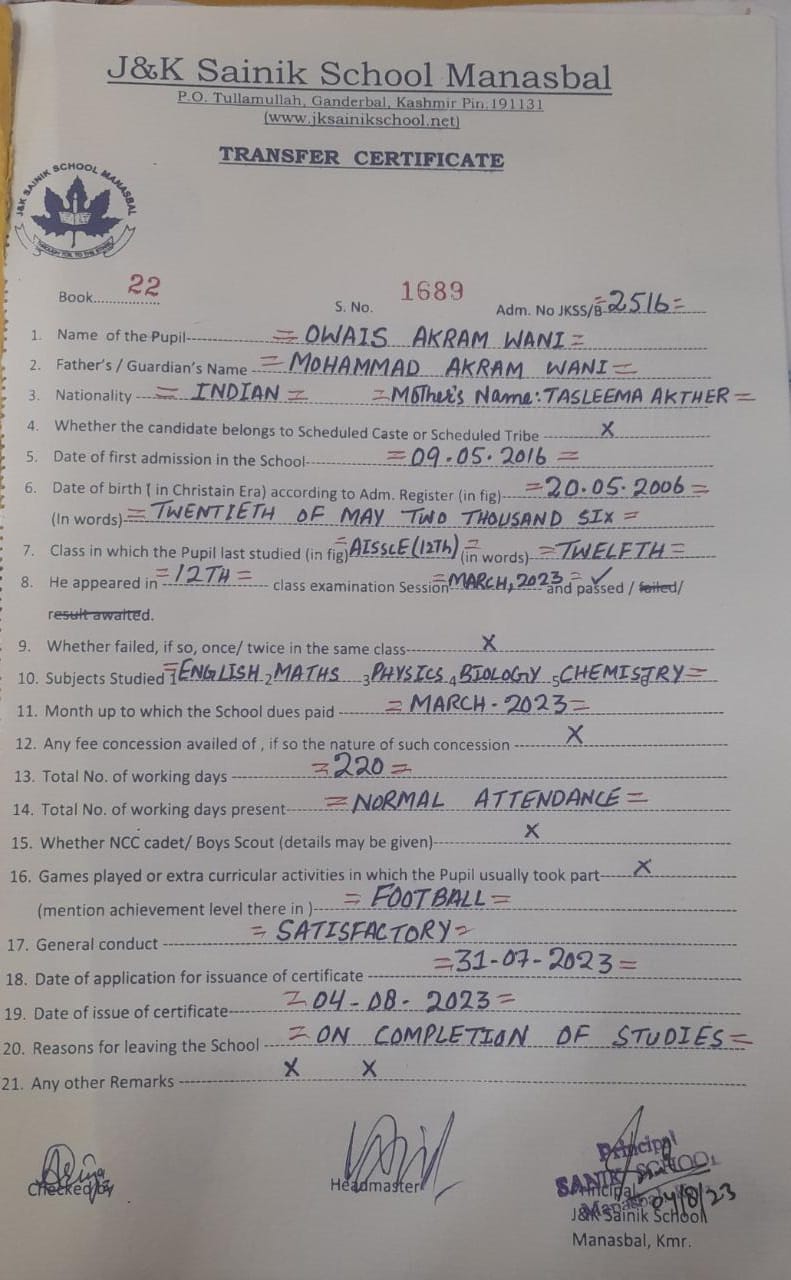 J&K Sainik School Manasbal
P.O. Tullamullah, Ganderbal, Kashmir Pin:191131
(www.jksainikschool.net)
TRANSFER CERTIFICATE
J&K SAINIK SCHOOL MANASBAL
Book.............. 22 S. No. 1689 Adm. No JKSS/B =2516=
1. Name of the Pupil = OWAIS AKRAM WANI =
2. Father's / Guardian's Name = MOHAMMAD AKRAM WANI =
3. Nationality = INDIAN = = Mother's Name: TASLEEMA AKTHER =
4. Whether the candidate belongs to Scheduled Caste or Scheduled Tribe X
5. Date of first admission in the School = 09.05.2016 =
6. Date of birth ( in Christain Era) according to Adm. Register (in fig) = 20.05.2006 =
(In words) = TWENTIETH OF MAY TWO THOUSAND SIX =
7. Class in which the Pupil last studied (in fig) = AISSCE (12Th) = (in words) = TWELFTH =
8. He appeared in = 12TH = class examination Session = MARCH, 2023 = and passed / failed/
result awaited.
9. Whether failed, if so, once/ twice in the same class X
10. Subjects Studied = 1 ENGLISH 2 MATHS 3 PHYSICS 4 BIOLOGY 5 CHEMISTRY =
11. Month up to which the School dues paid = MARCH - 2023 =
12. Any fee concession availed of , if so the nature of such concession X
13. Total No. of working days = 220 =
14. Total No. of working days present = NORMAL ATTENDANCE =
15. Whether NCC cadet/ Boys Scout (details may be given) X
16. Games played or extra curricular activities in which the Pupil usually took part X
(mention achievement level there in ) = FOOTBALL =
17. General conduct = SATISFACTORY =
18. Date of application for issuance of certificate = 31-07-2023 =
19. Date of issue of certificate = 04-08-2023 =
20. Reasons for leaving the School = ON COMPLETION OF STUDIES =
21. Any other Remarks X X
Checked by Headmaster Principal
Principal
SANIK SCHOOL
Manasbal
04/8/23
J&K Sainik School
Manasbal, Kmr.